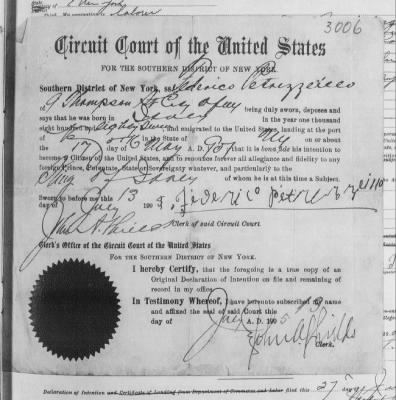 New York
3006
Circuit Court of the United States
FOR THE SOUTHERN DISTRICT OF NEW YORK.
Southern District of New York, ss: Federico Petrozziello
9 Thompson St City of NY being duly sworn, deposes and
says that he was born in Italy in the year one thousand
eight hundred and Eighty Seven and emigrated to the United States, landing at the port
of in the State of on or about
the 17 day of May A. D. that it is bona fide his intention to
become a Citizen of the United States, and to renounce forever all allegiance and fidelity to any
Foreign Prince, Potentate, State or Sovereignty whatever, and particularly to the
King of Italy of whom he is at this time a Subject.
Sworn to before me this 13
day of July 190
Clerk of said Circuit Court.
Clerk's Office of the Circuit Court of the United States
FOR THE SOUTHERN DISTRICT OF NEW YORK.
I hereby Certify, that the foregoing is a true copy of an
Original Declaration of Intention on file and remaining of
record in my office.
In Testimony Whereof, I have hereunto subscribed my name
and affixed the seal of said Court this
day of July A. D. 1905
John A Shields
Clerk.
Declaration of Intention and Certificate of Landing from Department of Commerce and Labor filed this 27